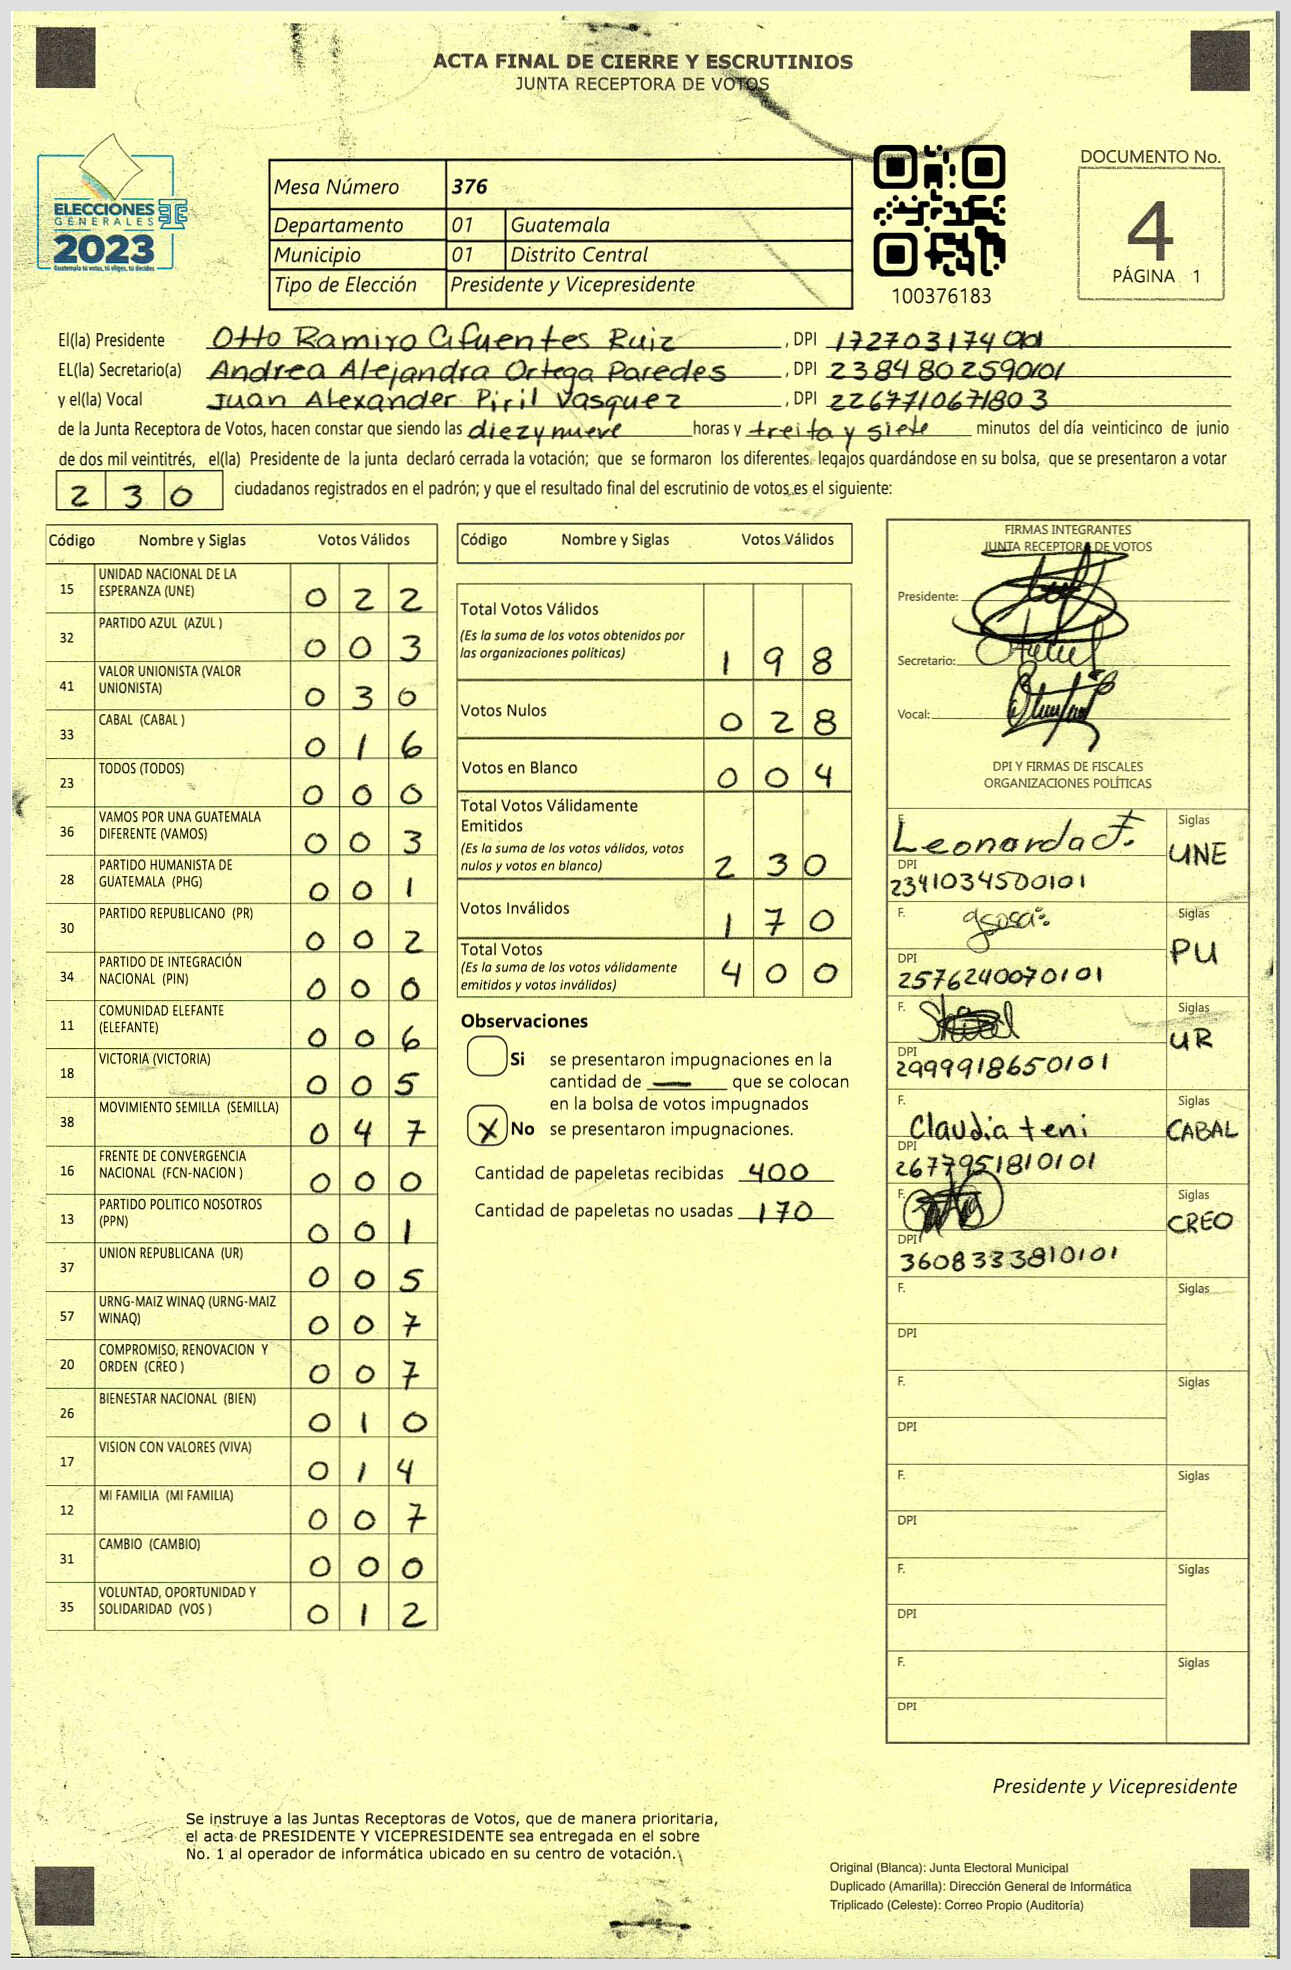 ACTA FINAL DE CIERRE Y ESCRUTINIOS
JUNTA RECEPTORA DE VOTOS
ELECCIONES
GENERALES
2023
Guatemala tú votas, tú eliges, tú decides
Mesa Número 376
Departamento 01 Guatemala
Municipio 01 Distrito Central
Tipo de Elección Presidente y Vicepresidente
100376183
DOCUMENTO No.
4
PÁGINA 1
El(la) Presidente Otto Ramiro Cifuentes Ruiz , DPI
EL(la) Secretario(a) Andrea Alejandra Ortega Paredes , DPI 2384802590101
y el(la) Vocal Juan Alexander Piril Vasquez , DPI 2267710671803
de la Junta Receptora de Votos, hacen constar que siendo las diezynueve horas y treita y siete minutos del día veinticinco de junio
de dos mil veintitrés, el(la) Presidente de la junta declaró cerrada la votación; que se formaron los diferentes legajos guardándose en su bolsa, que se presentaron a votar
230 ciudadanos registrados en el padrón; y que el resultado final del escrutinio de votos es el siguiente:
Código Nombre y Siglas Votos Válidos
15 UNIDAD NACIONAL DE LA ESPERANZA (UNE) 022
32 PARTIDO AZUL (AZUL ) 003
41 VALOR UNIONISTA (VALOR UNIONISTA) 030
33 CABAL (CABAL ) 016
23 TODOS (TODOS) 000
36 VAMOS POR UNA GUATEMALA DIFERENTE (VAMOS) 003
28 PARTIDO HUMANISTA DE GUATEMALA (PHG) 001
30 PARTIDO REPUBLICANO (PR) 002
34 PARTIDO DE INTEGRACIÓN NACIONAL (PIN) 000
11 COMUNIDAD ELEFANTE (ELEFANTE) 006
18 VICTORIA (VICTORIA) 005
38 MOVIMIENTO SEMILLA (SEMILLA) 047
16 FRENTE DE CONVERGENCIA NACIONAL (FCN-NACION ) 000
13 PARTIDO POLITICO NOSOTROS (PPN) 001
37 UNION REPUBLICANA (UR) 005
57 URNG-MAIZ WINAQ (URNG-MAIZ WINAQ) 007
20 COMPROMISO, RENOVACION Y ORDEN (CREO ) 007
26 BIENESTAR NACIONAL (BIEN) 010
17 VISION CON VALORES (VIVA) 014
12 MI FAMILIA (MI FAMILIA) 007
31 CAMBIO (CAMBIO) 000
35 VOLUNTAD, OPORTUNIDAD Y SOLIDARIDAD (VOS ) 012
Código Nombre y Siglas Votos Válidos
Total Votos Válidos
(Es la suma de los votos obtenidos por
las organizaciones políticas) 198
Votos Nulos 028
Votos en Blanco 004
Total Votos Válidamente
Emitidos
(Es la suma de los votos válidos, votos
nulos y votos en blanco) 230
Votos Inválidos 170
Total Votos
(Es la suma de los votos válidamente
emitidos y votos inválidos) 400
Observaciones
Si se presentaron impugnaciones en la
cantidad de — que se colocan
en la bolsa de votos impugnados
X No se presentaron impugnaciones.
Cantidad de papeletas recibidas 400
Cantidad de papeletas no usadas 170
FIRMAS INTEGRANTES
JUNTA RECEPTORA DE VOTOS
Presidente:
Secretario:
Vocal:
DPI Y FIRMAS DE FISCALES
ORGANIZACIONES POLÍTICAS
F. Leonarda F. Siglas UNE
DPI 2341034500101
F. Siglas PU
DPI 2576240070101
F. Siglas UR
DPI 2999918650101
F. Claudia teni Siglas CABAL
DPI 2677951810101
F. Siglas CREO
DPI 3608333810101
F. Siglas
DPI
F. Siglas
DPI
F. Siglas
DPI
F. Siglas
DPI
F. Siglas
DPI
Presidente y Vicepresidente
Se instruye a las Juntas Receptoras de Votos, que de manera prioritaria,
el acta de PRESIDENTE Y VICEPRESIDENTE sea entregada en el sobre
No. 1 al operador de informática ubicado en su centro de votación.
Original (Blanca): Junta Electoral Municipal
Duplicado (Amarilla): Dirección General de Informática
Triplicado (Celeste): Correo Propio (Auditoría)